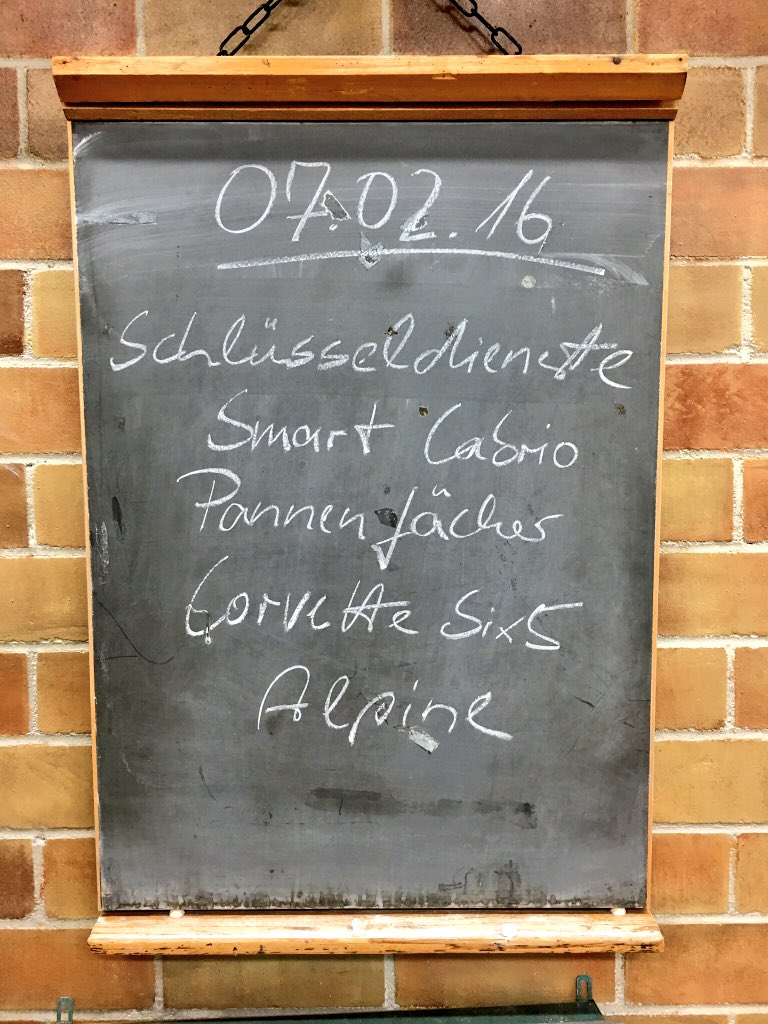 07.02.16
Schlüsseldienste
Smart Cabrio
Pannenfächer
Corvette Six5
Alpine